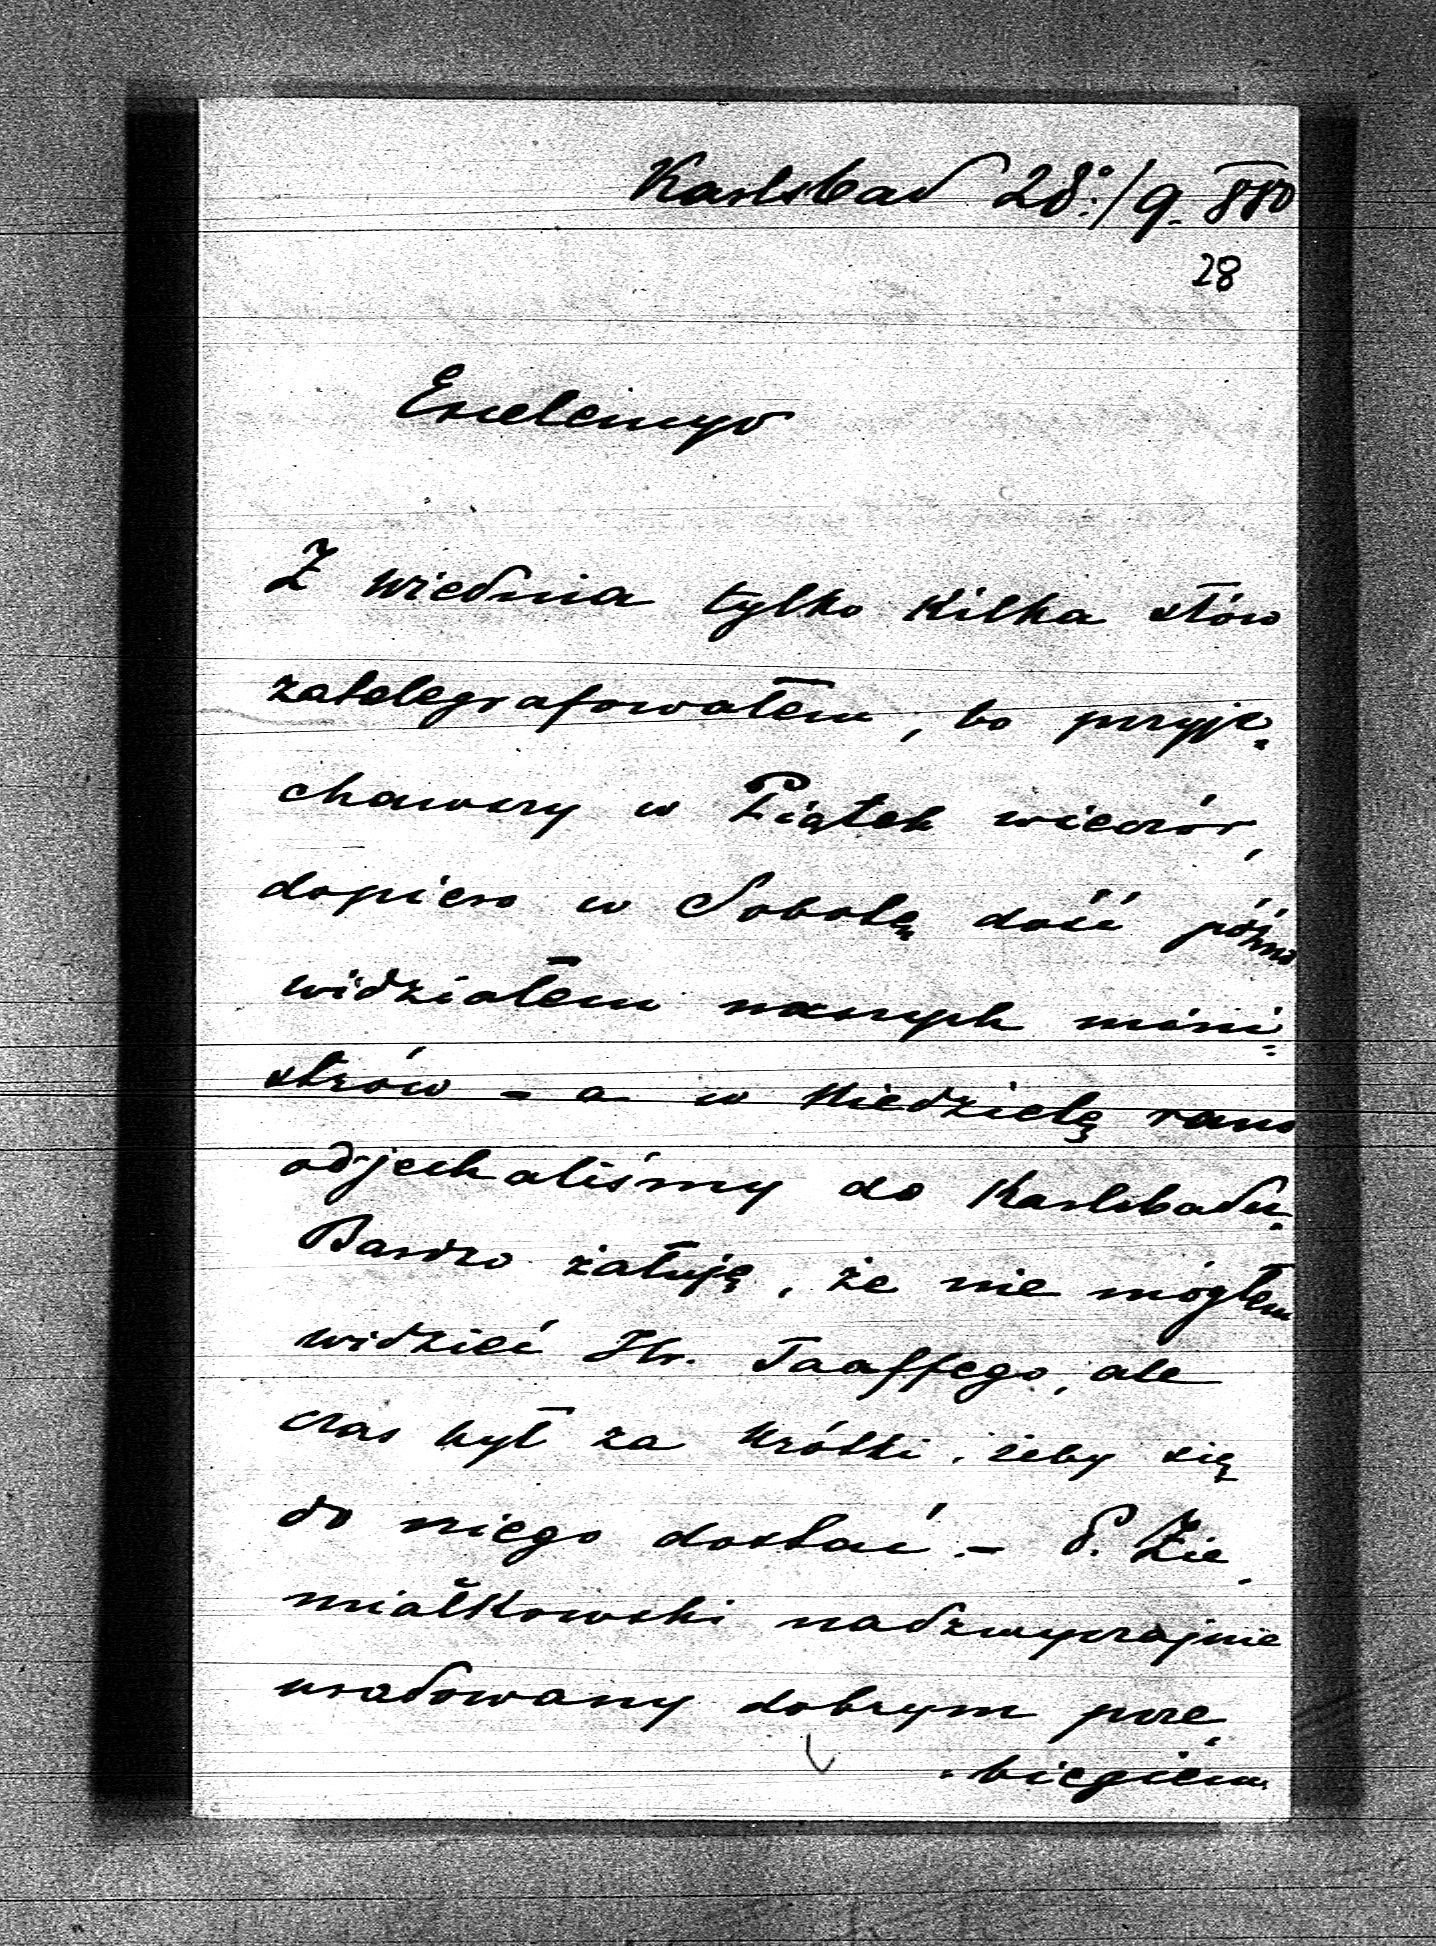 Karlsbad 28º/9. 880
28
Excelencyo
Z wiednia tylko kilka słów
zatelegrafowałem, bo przyje-
chawszy w Piątek wieczór,
dopiero w Sobotę dość późno
widziałem naszych mini-
strów - a w Niedzielę rano
odjechaliśmy do Karlsbadu.
Bardzo żałuję, że nie mógłem
widzieć Hr. Taaffego, ale
czas był za krótki, żeby się
do niego dostać. - P. Zie-
miałkowski nadzwyczajnie
uradowany dobrym prze-
-biegiem